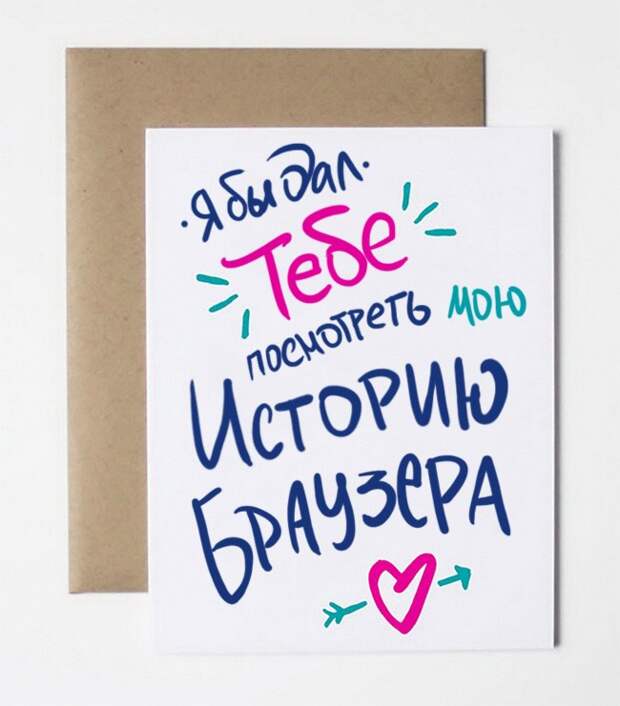 ·Я бы дал·
Тебе
посмотреть мою
Историю
Браузера